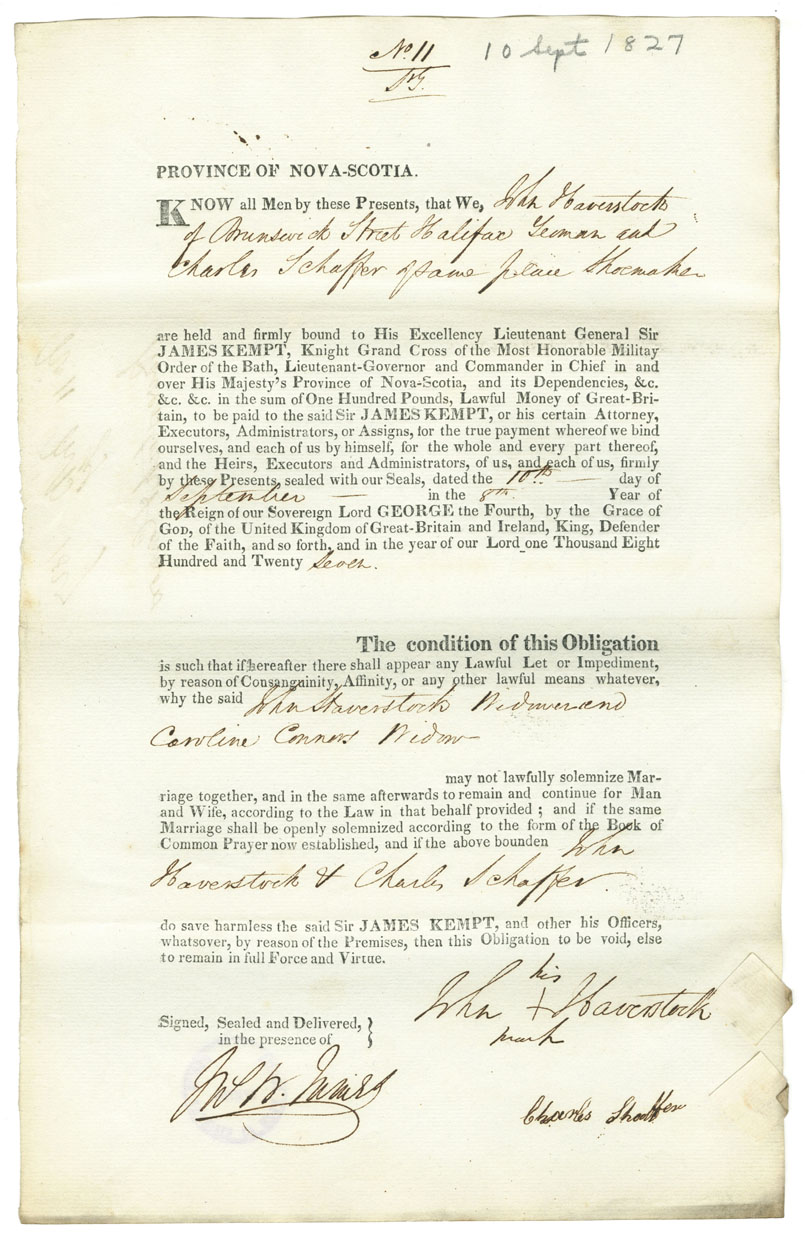 No. 11
10 Sept 1827
PROVINCE OF NOVA-SCOTIA.
KNOW all Men by these Presents, that We, John Haverstock
of Brunswick Street Halifax Yeoman and
Charles Schaffer of same place Shoemaker
are held and firmly bound to His Excellency Lieutenant General Sir
JAMES KEMPT, Knight Grand Cross of the Most Honorable Militay
Order of the Bath, Lieutenant-Governor and Commander in Chief in and
over His Majesty's Province of Nova-Scotia, and its Dependencies, &c.
&c. &c. in the sum of One Hundred Pounds, Lawful Money of Great-Bri-
tain, to be paid to the said Sir JAMES KEMPT, or his certain Attorney,
Executors, Administrators, or Assigns, for the true payment whereof we bind
ourselves, and each of us by himself, for the whole and every part thereof,
and the Heirs, Executors and Administrators, of us, and each of us, firmly
by these Presents, sealed with our Seals, dated the 10th — day of
September — in the 8th. Year of
the Reign of our Sovereign Lord GEORGE the Fourth, by the Grace of
GOD, of the United Kingdom of Great-Britain and Ireland, King, Defender
of the Faith, and so forth, and in the year of our Lord one Thousand Eight
Hundred and Twenty Seven.
The condition of this Obligation
is such that if hereafter there shall appear any Lawful Let or Impediment,
by reason of Consanguinity, Affinity, or any other lawful means whatever,
why the said John Haverstock Widower and
Caroline Connors Widow
may not lawfully solemnize Mar-
riage together, and in the same afterwards to remain and continue for Man
and Wife, according to the Law in that behalf provided ; and if the same
Marriage shall be openly solemnized according to the form of the Book of
Common Prayer now established, and if the above bounden John
Haverstock & Charles Schaffer.
do save harmless the said Sir JAMES KEMPT, and other his Officers,
whatsover, by reason of the Premises, then this Obligation to be void, else
to remain in full Force and Virtue.
his
John + Haverstock
mark
Signed, Sealed and Delivered, }
in the presence of
Charles